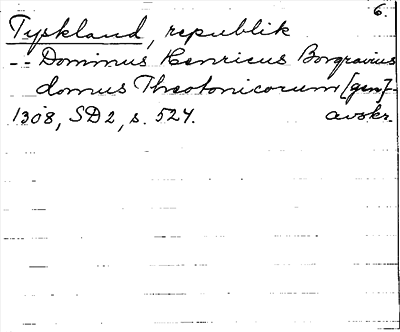 6.
Tyskland, republik
-- Dominus Henricus Borgravius
domus Theotonicorum [gen]-
1308, SD 2, s. 524. avskr.